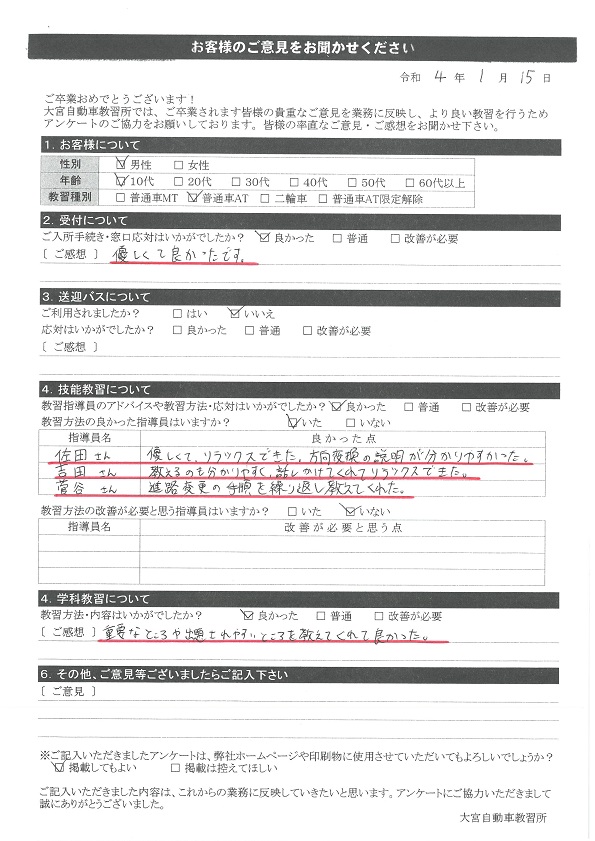 お客様のご意見をお聞かせください
令和 4 年 1 月 15 日
ご卒業おめでとうございます！
大宮自動車教習所では、ご卒業されます皆様の貴重なご意見を業務に反映し、より良い教習を行うため
アンケートのご協力をお願いしております。皆様の率直なご意見・ご感想をお聞かせ下さい。
1. お客様について
性別 ☑男性 □女性
年齢 ☑10代 □20代 □30代 □40代 □50代 □60代以上
教習種別 □普通車MT ☑普通車AT □二輪車 □普通車AT限定解除
2. 受付について
ご入所手続き・窓口応対はいかがでしたか？ ☑良かった □普通 □改善が必要
［ご感想］ 優しくて良かったです。
3. 送迎バスについて
ご利用されましたか？ □はい ☑いいえ
応対はいかがでしたか？ □良かった □普通 □改善が必要
［ご感想］
4. 技能教習について
教習指導員のアドバイスや教習方法・応対はいかがでしたか？ ☑良かった □普通 □改善が必要
教習方法の良かった指導員はいますか？ ☑いた □いない
指導員名 良かった点
佐田さん 優しくて、リラックスできた。方向変換の説明が分かりやすかった。
吉田さん 教えるのも分かりやすく、話しかけてくれてリラックスできた。
菅谷さん 進路変更の手順を繰り返し教えてくれた。
教習方法の改善が必要と思う指導員はいますか？ □いた ☑いない
指導員名 改善が必要と思う点
4. 学科教習について
教習方法・内容はいかがでしたか？ ☑良かった □普通 □改善が必要
［ご感想］ 重要なところや出題されやすいところを教えてくれて良かった。
6. その他、ご意見等ございましたらご記入下さい
［ご意見］
※ご記入いただきましたアンケートは、弊社ホームページや印刷物に使用させていただいてもよろしいでしょうか？
☑掲載してもよい □掲載は控えてほしい
ご記入いただきました内容は、これからの業務に反映していきたいと思います。アンケートにご協力いただきまして
誠にありがとうございました。
大宮自動車教習所